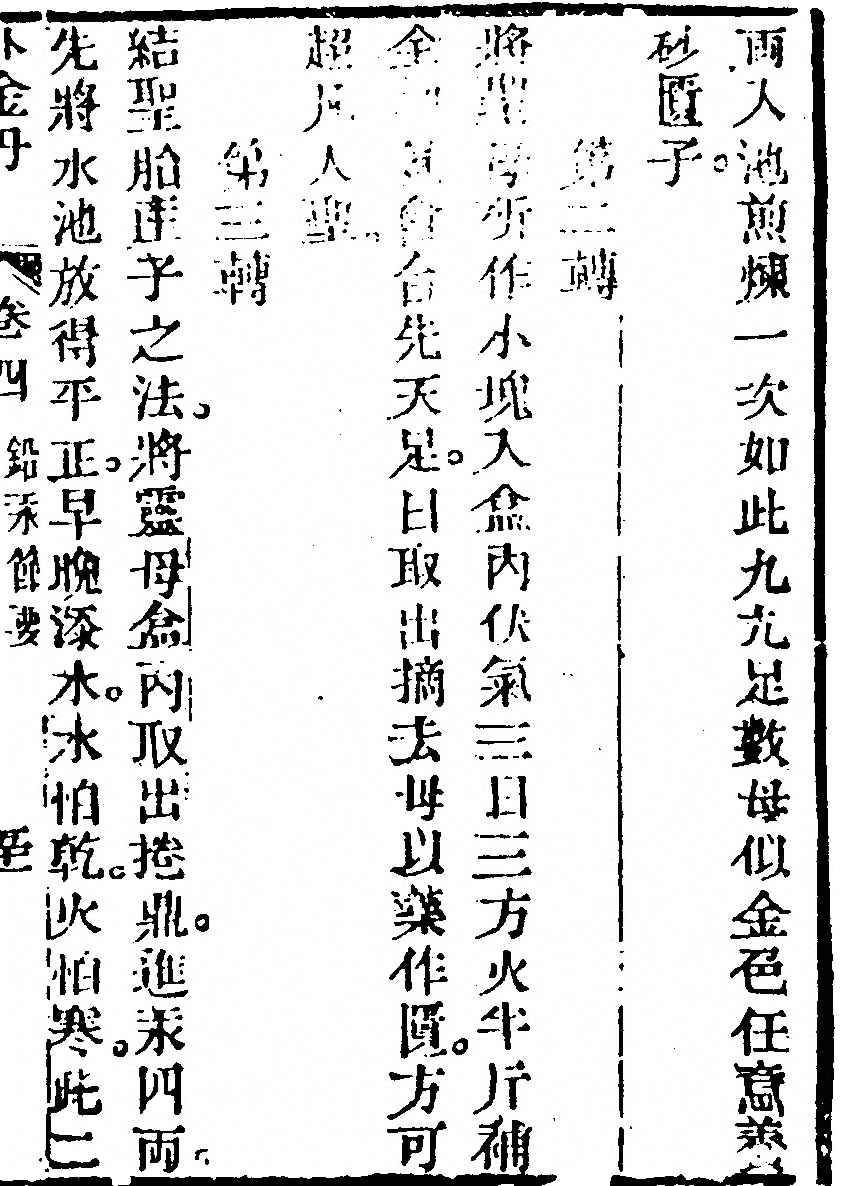 兩入池煎煉一次如此九九足數母似金色任意養
砂匱子。
第二轉
將聖母斫作小塊入盒內伏氣三日三方火半斤補
金 氣會合先天足。日取出摘去母以藥作匱。方可
超凡入聖。
第三轉
結聖胎產子之法。將靈母盒內取出捲鼎。進汞四兩。
先將水池放得平正。早晚添水。水怕乾。火怕寒。此二
外金丹 卷四 鉛汞節要